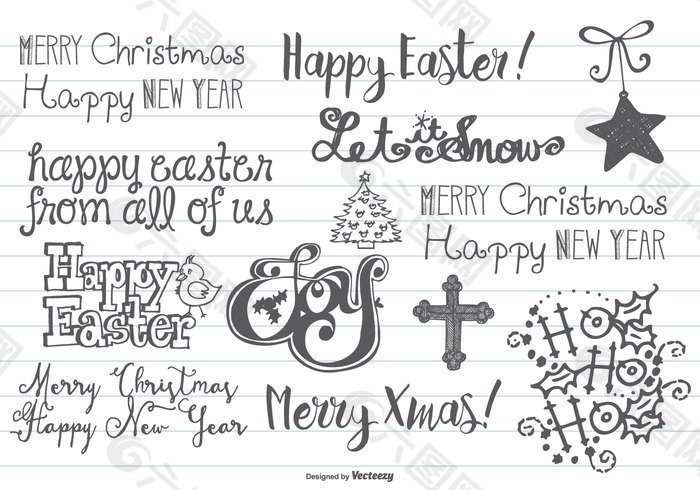 MERRY Christmas
Happy NEW YEAR
Happy Easter!
Let it Snow
happy easter
from all of us
MERRY Christmas
Happy NEW YEAR
Happy
Easter
Joy
HO
HO
HO
Merry Christmas
Happy New Year
Merry Xmas!
Designed by Vecteezy
六图网